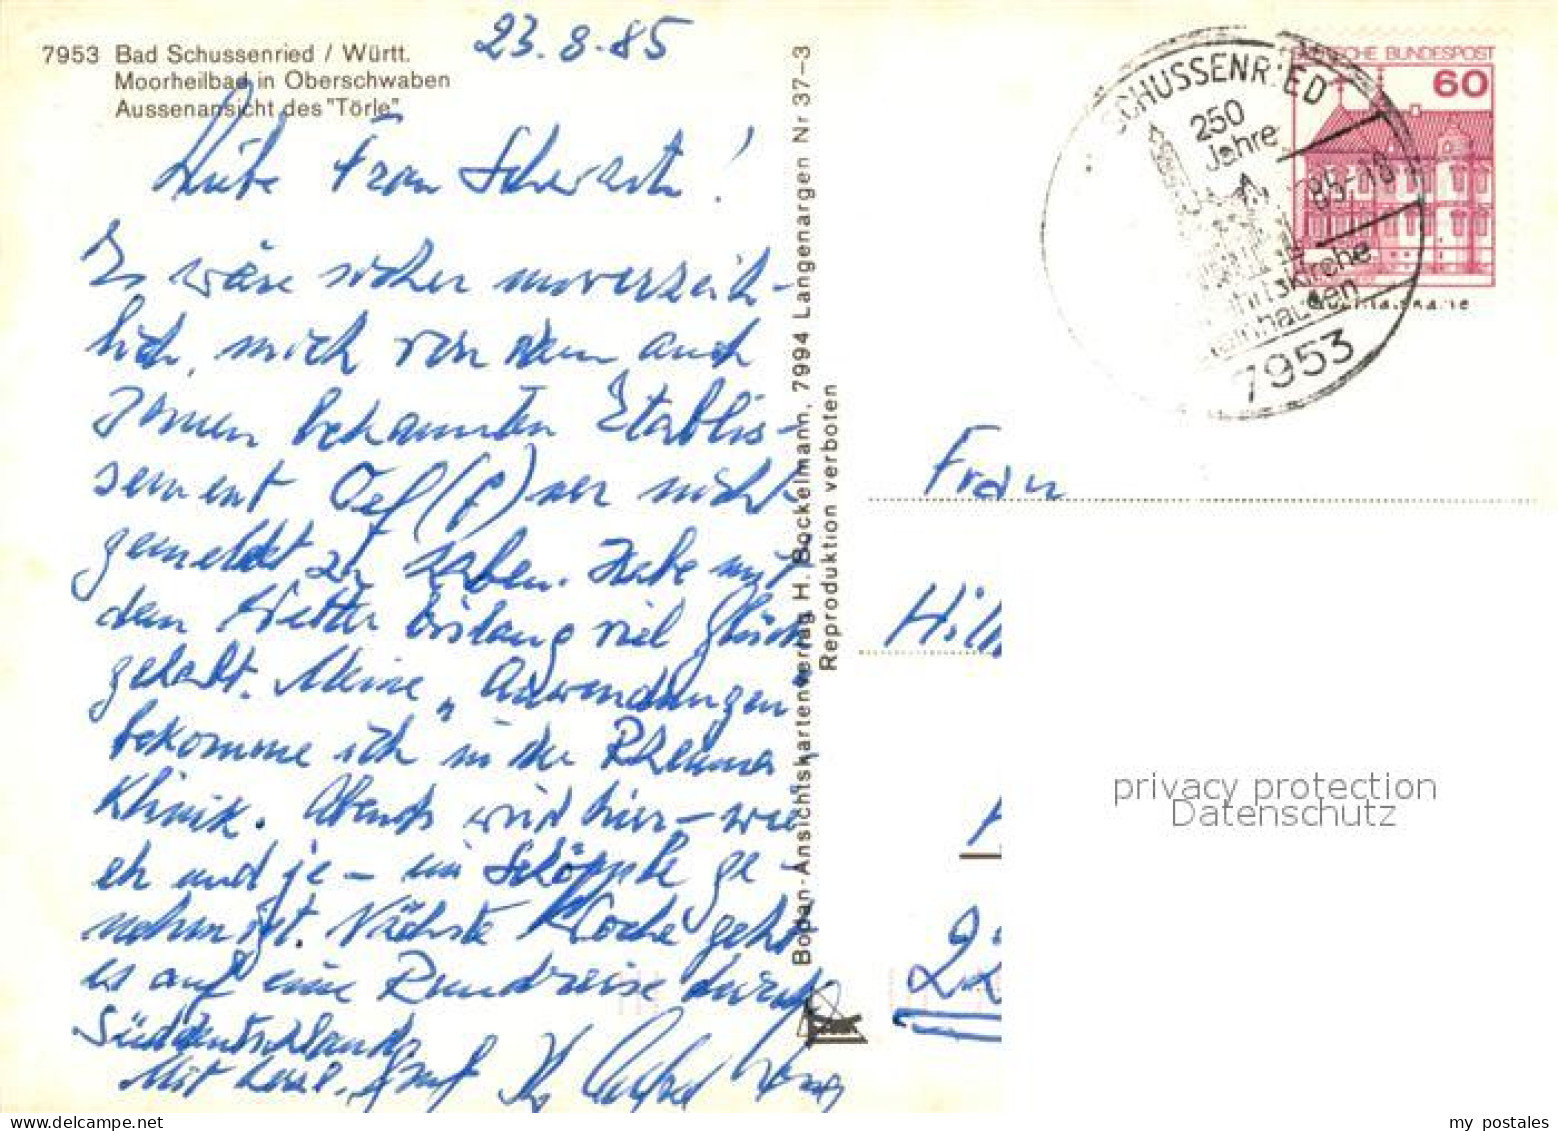 7953 Bad Schussenried / Württ.
Moorheilbad in Oberschwaben
Aussenansicht des "Törle"
23.8.85
Liebe Frau Schwartz!
Es wäre sicher unverzeih-
lich, mich von dem auch
Ihnen bekannten Etablis-
sement (f) ner nicht
gemeldet zu haben. Habe mit
dem Wetter bislang viel Glück
gehabt. Meine „Anwendungen"
bekomme ich in der Rheuma-
Klinik. Abends wird hier – wie
eh und je – ein Schöpple ge-
nehmigt. Nächste Woche geht
es auf eine Rundreise durch
Süddeutschland.
Mit herzl. Gruß Ihr
Bodan-Ansichtskartenverlag H. Bockelmann, 7994 Langenargen Nr 37–3
Reproduktion verboten
SCHUSSENRIED
250
Jahre
85-18
7953
DEUTSCHE BUNDESPOST
60
Frau
privacy protection
Datenschutz
my postales